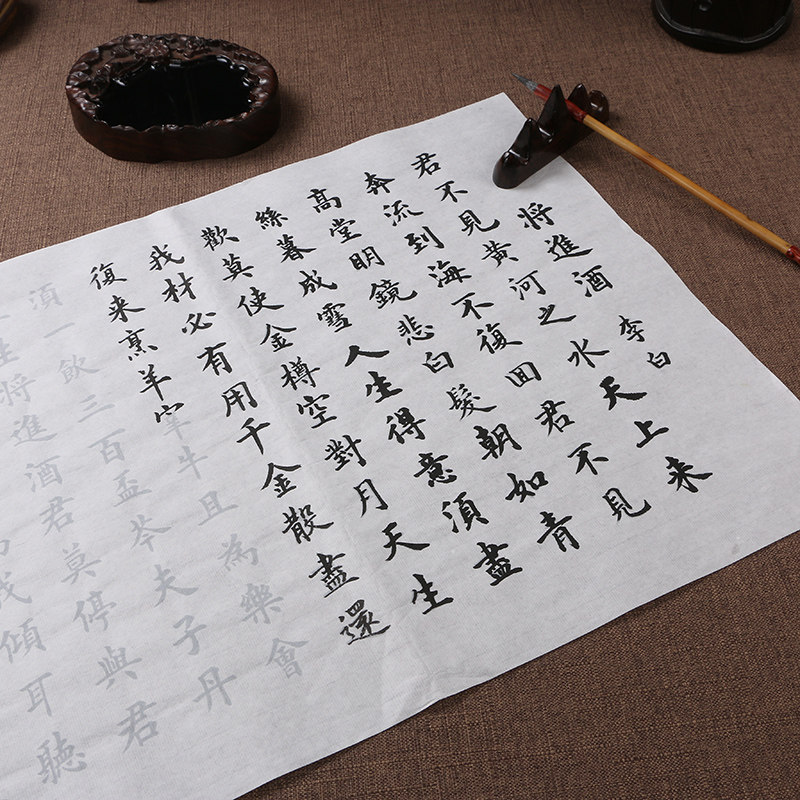 將進酒 李白
君不見黃河之水天上来
奔流到海不復回君不見
高堂明鏡悲白髮朝如青
絲暮成雪人生得意須盡
歡莫使金樽空對月天生
我材必有用千金散盡還
復来烹羊宰牛且為樂會
須一飲三百盃岑夫子丹
生將進酒君莫停與君
我傾耳聽